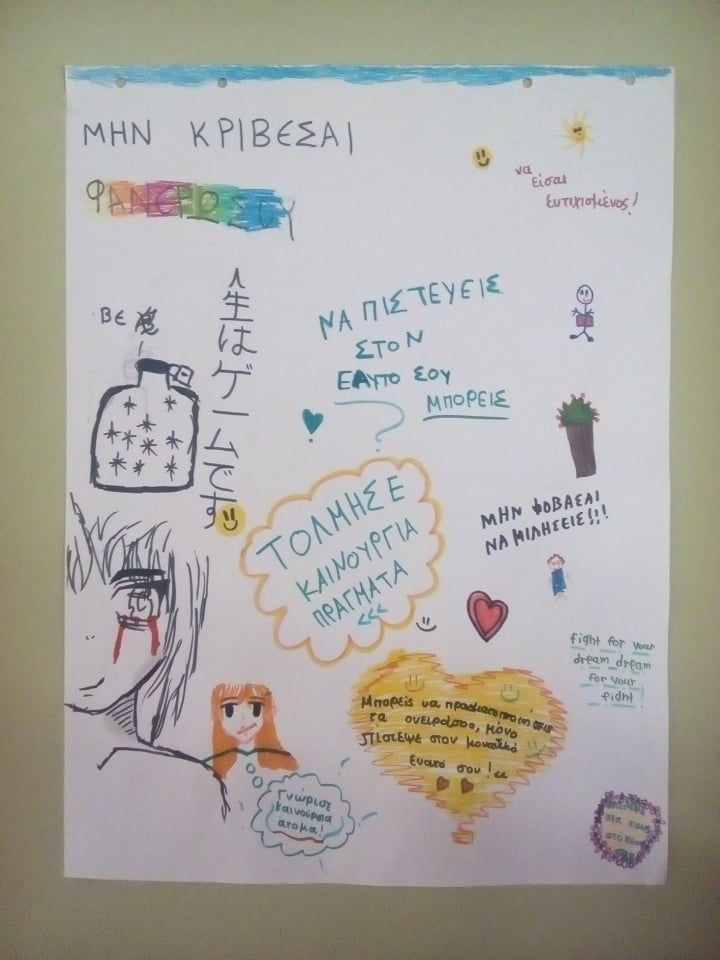 ΜΗΝ ΚΡΙΒΕΣΑΙ
ΦΑΝΕΡΟΣΟΥ
να
είσαι
ευτιχισμένος!
BE
人生はゲームです
ΝΑ ΠΙΣΤΕΥΕΙΣ
ΣΤΟΝ
ΕΑΥΤΟ ΣΟΥ
ΜΠΟΡΕΙΣ
ΤΟΛΜΗΣΕ
ΚΑΙΝΟΥΡΓΙΑ
ΠΡΑΓΜΑΤΑ
ΜΗΝ ΦΟΒΑΣΑΙ
ΝΑ ΜΙΛΗΣΕΙΣ!!!
fight for your
dream dream
for your
fight
Μπορείς να
τα ονειράσου, μόνο
πίστεψε στον μοναδικό
ευατό σου!
Γνώρισε
καινούργια
άτομα!
για τους